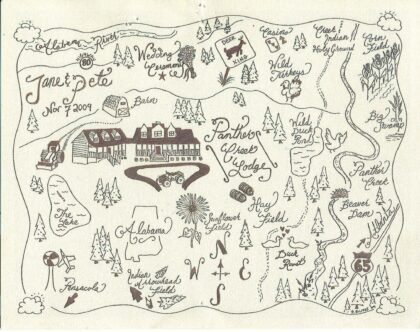 Alabama River
80
Wedding
Ceremony
Casino
Creek
Indian
Holy Ground
Corn
Field
Deer
Xing
Wild
Turkeys
Janet & Pete
Nov 7 2009
Barn
Big
Swamp
Panther
Creek
Lodge
Wild
Duck
Pond
Panther
Creek
The
Lake
Alabama
Sunflower
Field
Hay
Field
Beaver
Dam
N
W
E
S
Duck
Roost
65
Pensacola
Indian
Arrowhead
Field